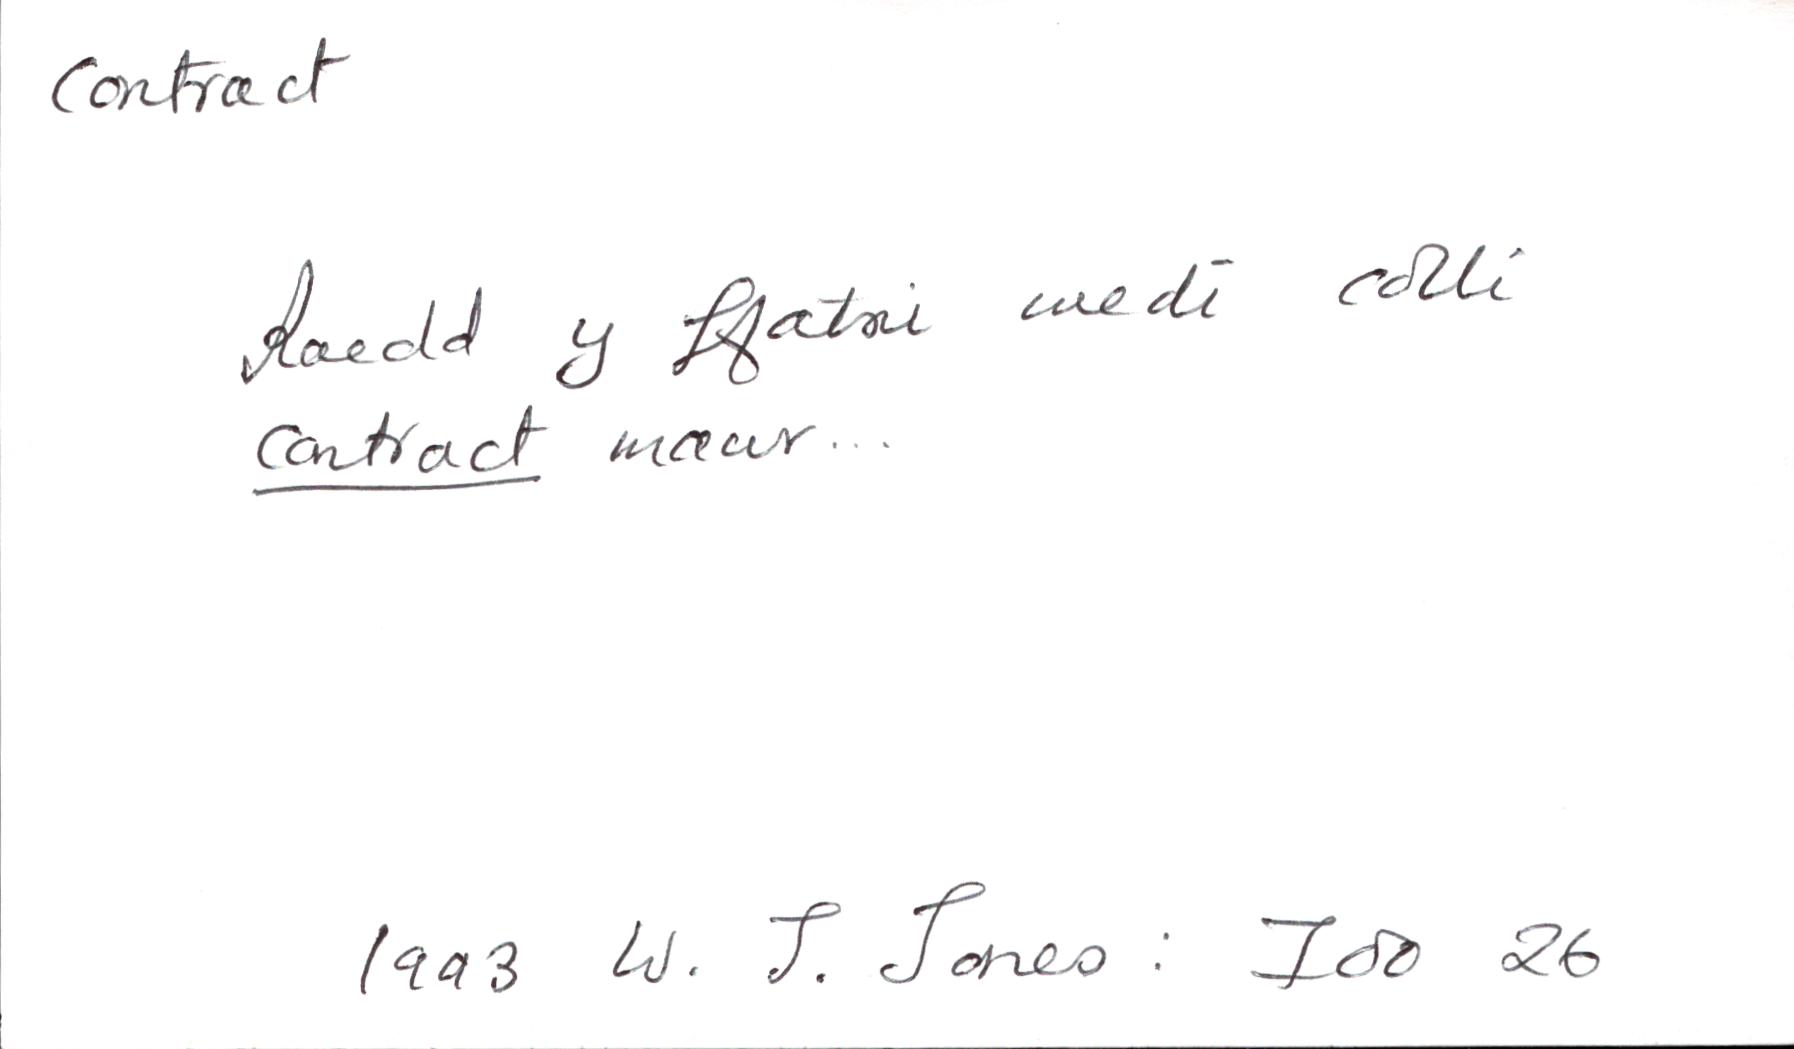 contract
Roedd y ffatri wedi colli
contract mawr...
1993 W. J. Jones: Ioo 26